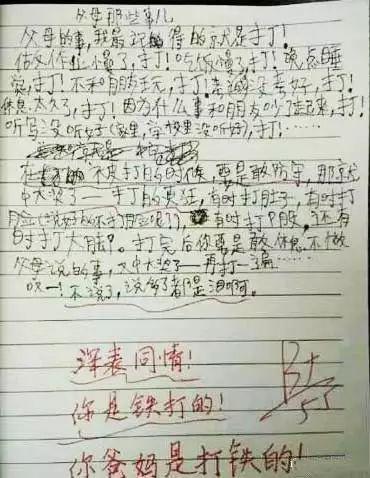 父母那些事儿
父母的事,我最记得的就是打!
作业慢了,打!吃饭慢了,打!晚点睡
觉,打!不和朋玩,打!考试没考好,打!
休息太久了,打!因为什么事和朋友吵了起来,打!
听写没听好(家里,学校里没听好),打!……
在不皮打的时候,要是敢防守,那就
中大奖了——打的更狂,有时打肚子,有时打
脸(说好的不打脸呢!?),有时打P股,还有
时打大腿。打完后你要是敢休息不做
父母说的事,又中大奖了——再打一遍……
哎—!不说了,说多了都是泪啊。
深表同情!
你是铁打的!
你爸妈是打铁的!
B+